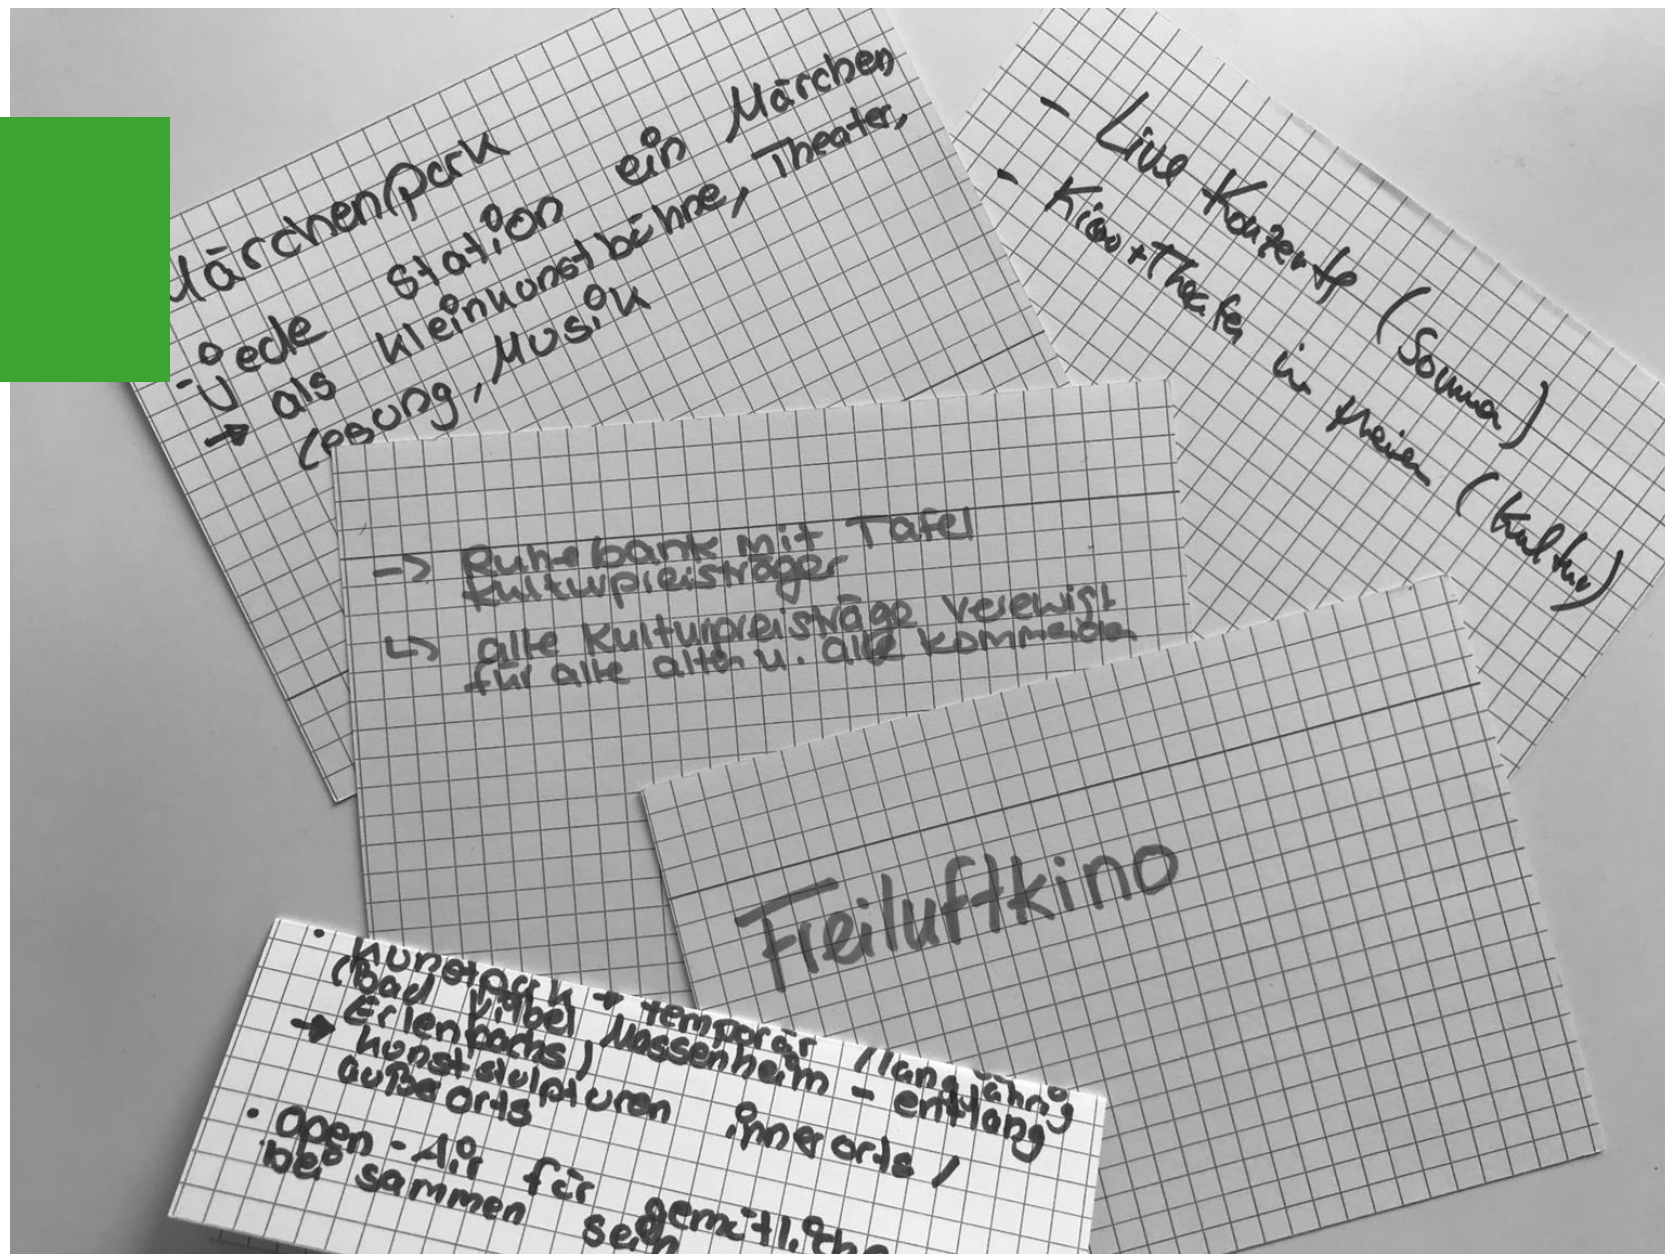 Märchenpark
- jede Station ein Märchen
→ als Kleinkunstbühne, Theater,
Lesung, Musik
- Live Konzerte (Sommer)
- Kino + Theater im Freien (Kultur)
→ Ruhebank mit Tafel
Kulturpreisträger
↳ alle Kulturpreisträge verewigt
für alle alten u. alle kommenden
Freiluftkino
• Kunstpark → temporär / langjährig
(Bad Vilbel Massenheim - entlang
Erlenbachs)
→ Kunstskulpturen innerorts /
außerorts
• Open-Air für gemütliche
bei sammen sein